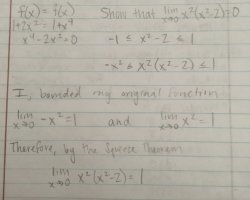 f(x) = f(x) Show that lim x→0 x²(x²-2)=0
1+2x² = 1+x⁴
x⁴-2x²=0 -1 ≤ x²-2 ≤ 1
-x² ≤ x²(x²-2) ≤ 1
I, bounded my original function
lim x→0 -x² = 1 and lim x→0 x² = 1
Therefore, by the Squeeze Theorem
lim x→0 x²(x²-2) = 1